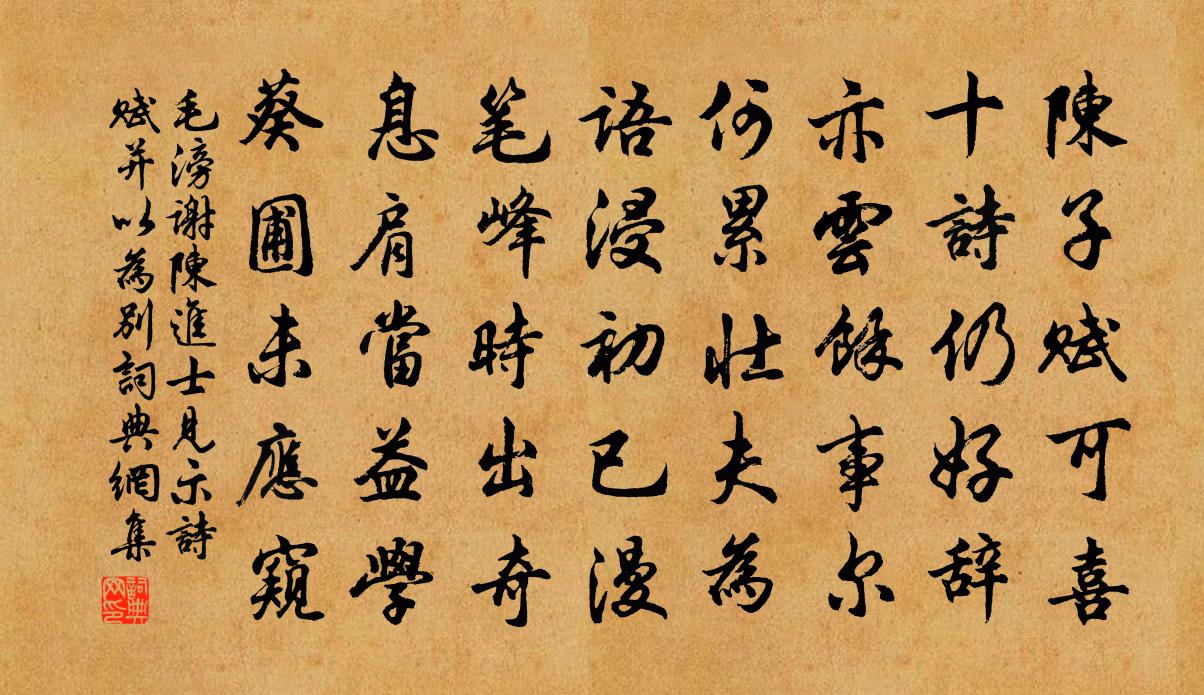 陳子賦可喜
十詩仍好辞
亦雲餘事尔
何累壮夫為
語浸初已漫
笔峰時出奇
息肩當益學
葵圃未應窺
毛滂謝陳進士見示詩
賦并以為别詞典網集
詞典网印